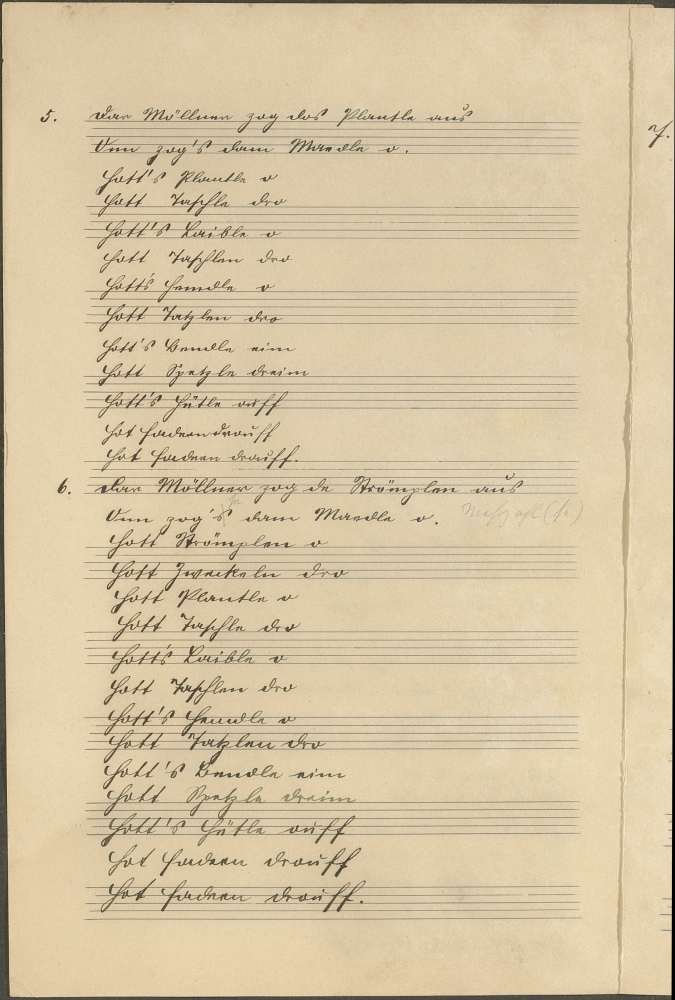 5. Dar Möllner zog das Plantle aus
Onn zog's dam Maedle o.
Hott's Plantle o
Hott Taschle dro
Hott's Laible o
Hott Taschlen dro
Hott's Hemdle o
Hott Tatzlen dro
Hott's Bendle eim
Hott Spetzle dreim
Hott's Hütle auff
Hot Fadern drauff
Hot Fadern drauff.
7.
6. Dar Möllner zog de Strömplen aus
Onn zog's dam Maedle o.
Hott Strömplen o
Hott Zweckeln dro
Hott Plantle o
Hott Taschle dro
Hott's Laible o
Hott Taschlen dro
Hott's Hemdle o
Hott Tatzlen dro
Hott's Bendle eim
Hott Spetzle dreim
Hott's Hütle auff
Hot Fadern drauff
Hot Fadern drauff.